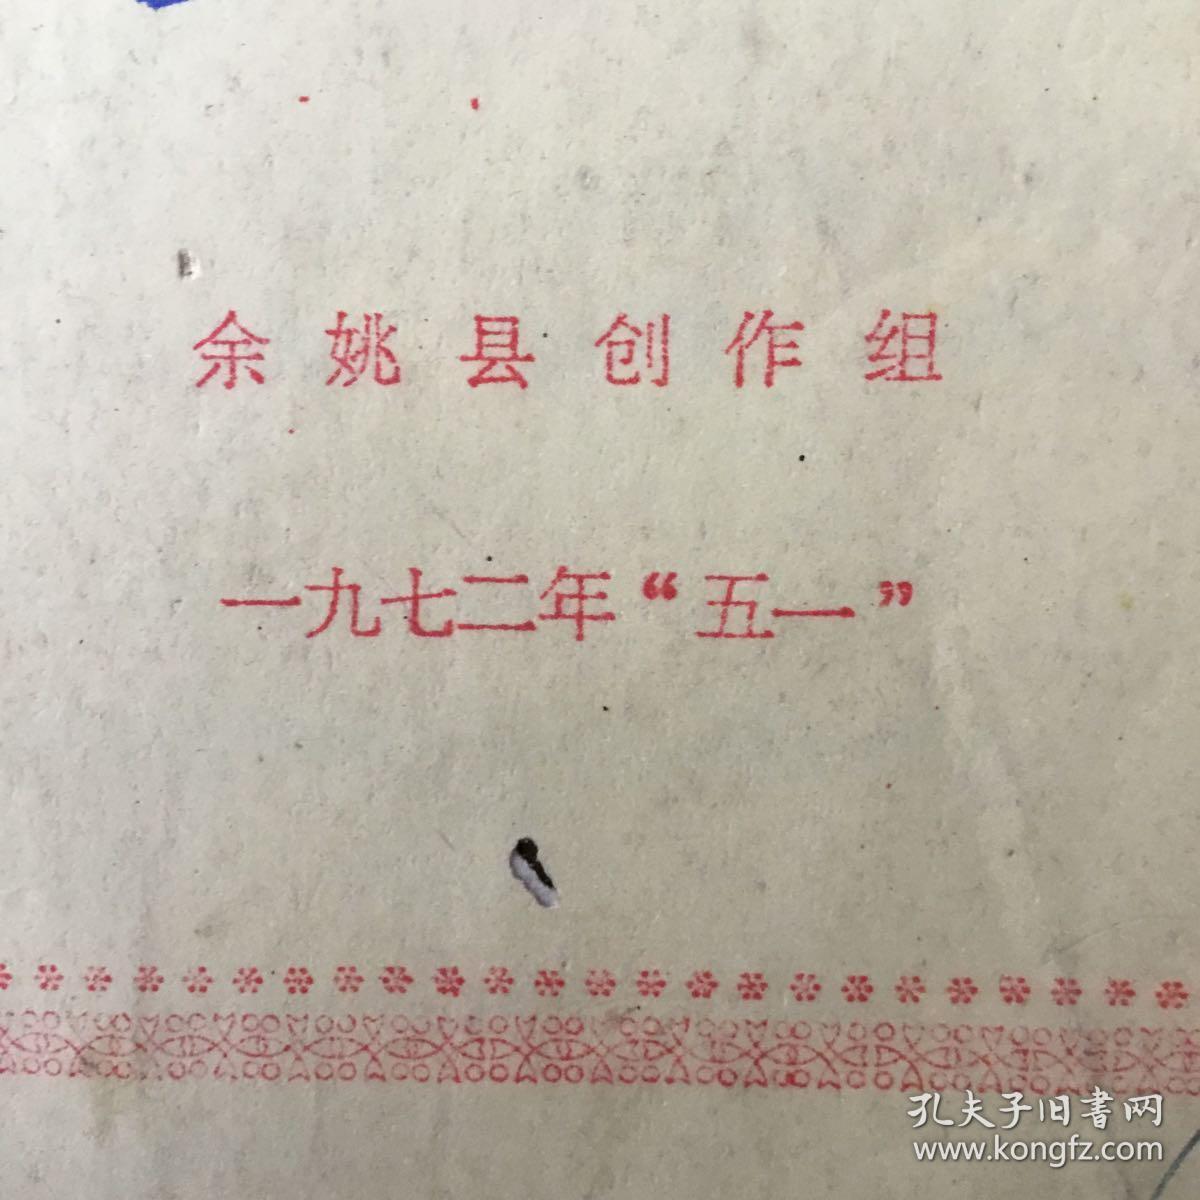 余姚县创作组
一九七二年“五一”
孔夫子旧書网
www.kongfz.com